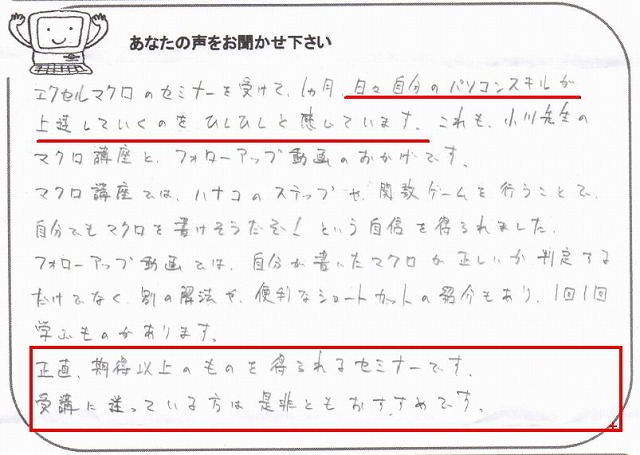 あなたの声をお聞かせ下さい
エクセルマクロのセミナーを受けて、1ヵ月、日々自分のパソコンスキルが
上達していくのをひしひしと感じています。これも、小川先生の
マクロ講座と、フォローアップ動画のおかげです。
マクロ講座では、ハナコのステップや、関数ゲームを行うことで、
自分でもマクロを書けそうだぞ！という自信を得られました。
フォローアップ動画では、自分が書いたマクロが正しいか判定する
だけでなく、別の解法や、便利なショートカットの紹介もあり、1回1回
学ぶものがあります。
正直、期待以上のものを得られるセミナーです。
受講に迷っている方は是非ともおすすめです。